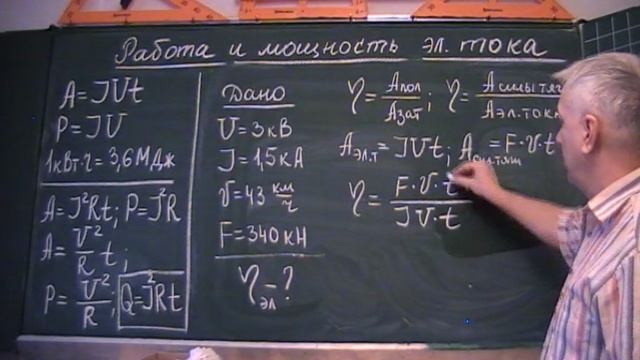 Работа и мощность эл. тока
A=JUt
P=JU
1кВт·ч=3,6МДж
A=J²Rt; P=J²R
A=U²/R t;
P=U²/R; Q=J²Rt
Дано
U=3кВ
J=1,5кА
v=43 км/ч
F=340кН
η эл -?
η=Aпол/Aзат; η=Aсилы тяг/Aэл.тока
Aэл.т=JUt; Aсил.тяги=F·v·t
η=F·v·t/JU·t